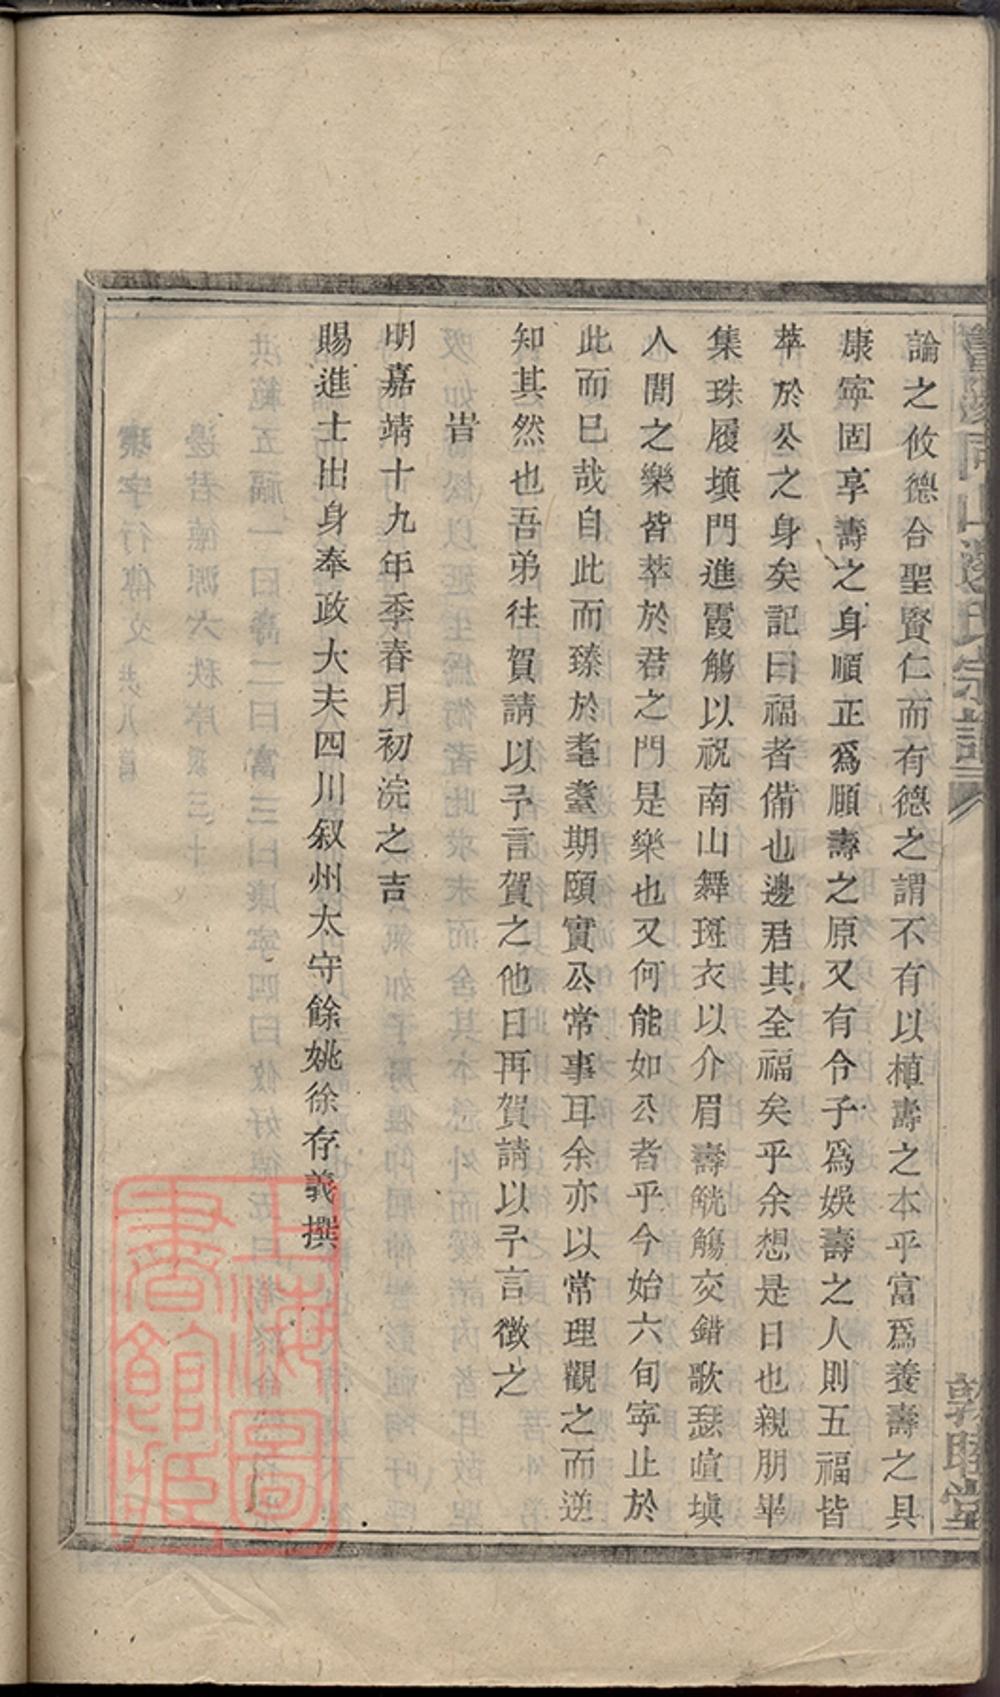 論之攸德合聖賢仁而有德之謂不有以植壽之本乎富爲養壽之具
康寧固享壽之身順正爲願壽之原又有令子爲娛壽之人則五福皆
萃於公之身矣記曰福者備也邊君其全福矣乎余想是日也親朋畢
集珠履填門進霞觴以祝南山舞斑衣以介眉壽觥觴交錯歌瑟喧塡
人間之樂皆萃於君之門是樂也又何能如公者乎今始六旬寧止於
此而已哉自此而臻於耄耋期頤實公常事耳余亦以常理觀之而逆
知其然也吾弟往賀請以予言賀之他日再賀請以予言徵之
旹
明嘉靖十九年季春月初浣之吉
賜進士出身奉政大夫四川叙州太守餘姚徐存義撰
山邊氏宗譜
敦睦堂
上海圖書館藏